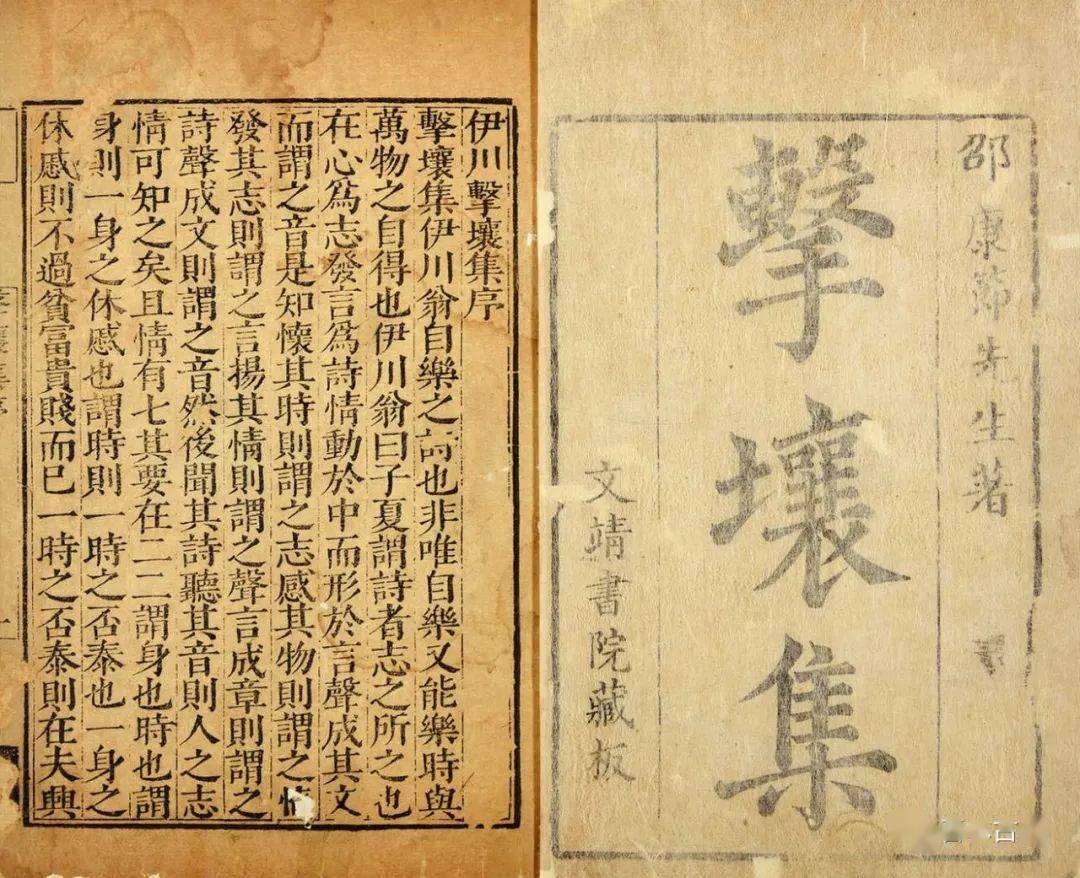 邵康節先生著
擊壤集
文靖書院藏板
伊川擊壤集序
擊壤集伊川翁自樂之詩也非唯自樂又能樂時與
萬物之自得也伊川翁曰子夏謂詩者志之所之也
在心爲志發言爲詩情動於中而形於言聲成其文
而謂之音是知懷其時則謂之志感其物則謂之情
發其志則謂之言揚其情則謂之聲言成章則謂之
詩聲成文則謂之音然後聞其詩聽其音則人之志
情可知之矣且情有七其要在二二謂身也時也謂
身則一身之休慼也謂時則一時之否泰也一身之
休慼則不過貧富貴賤而已一時之否泰則在夫興